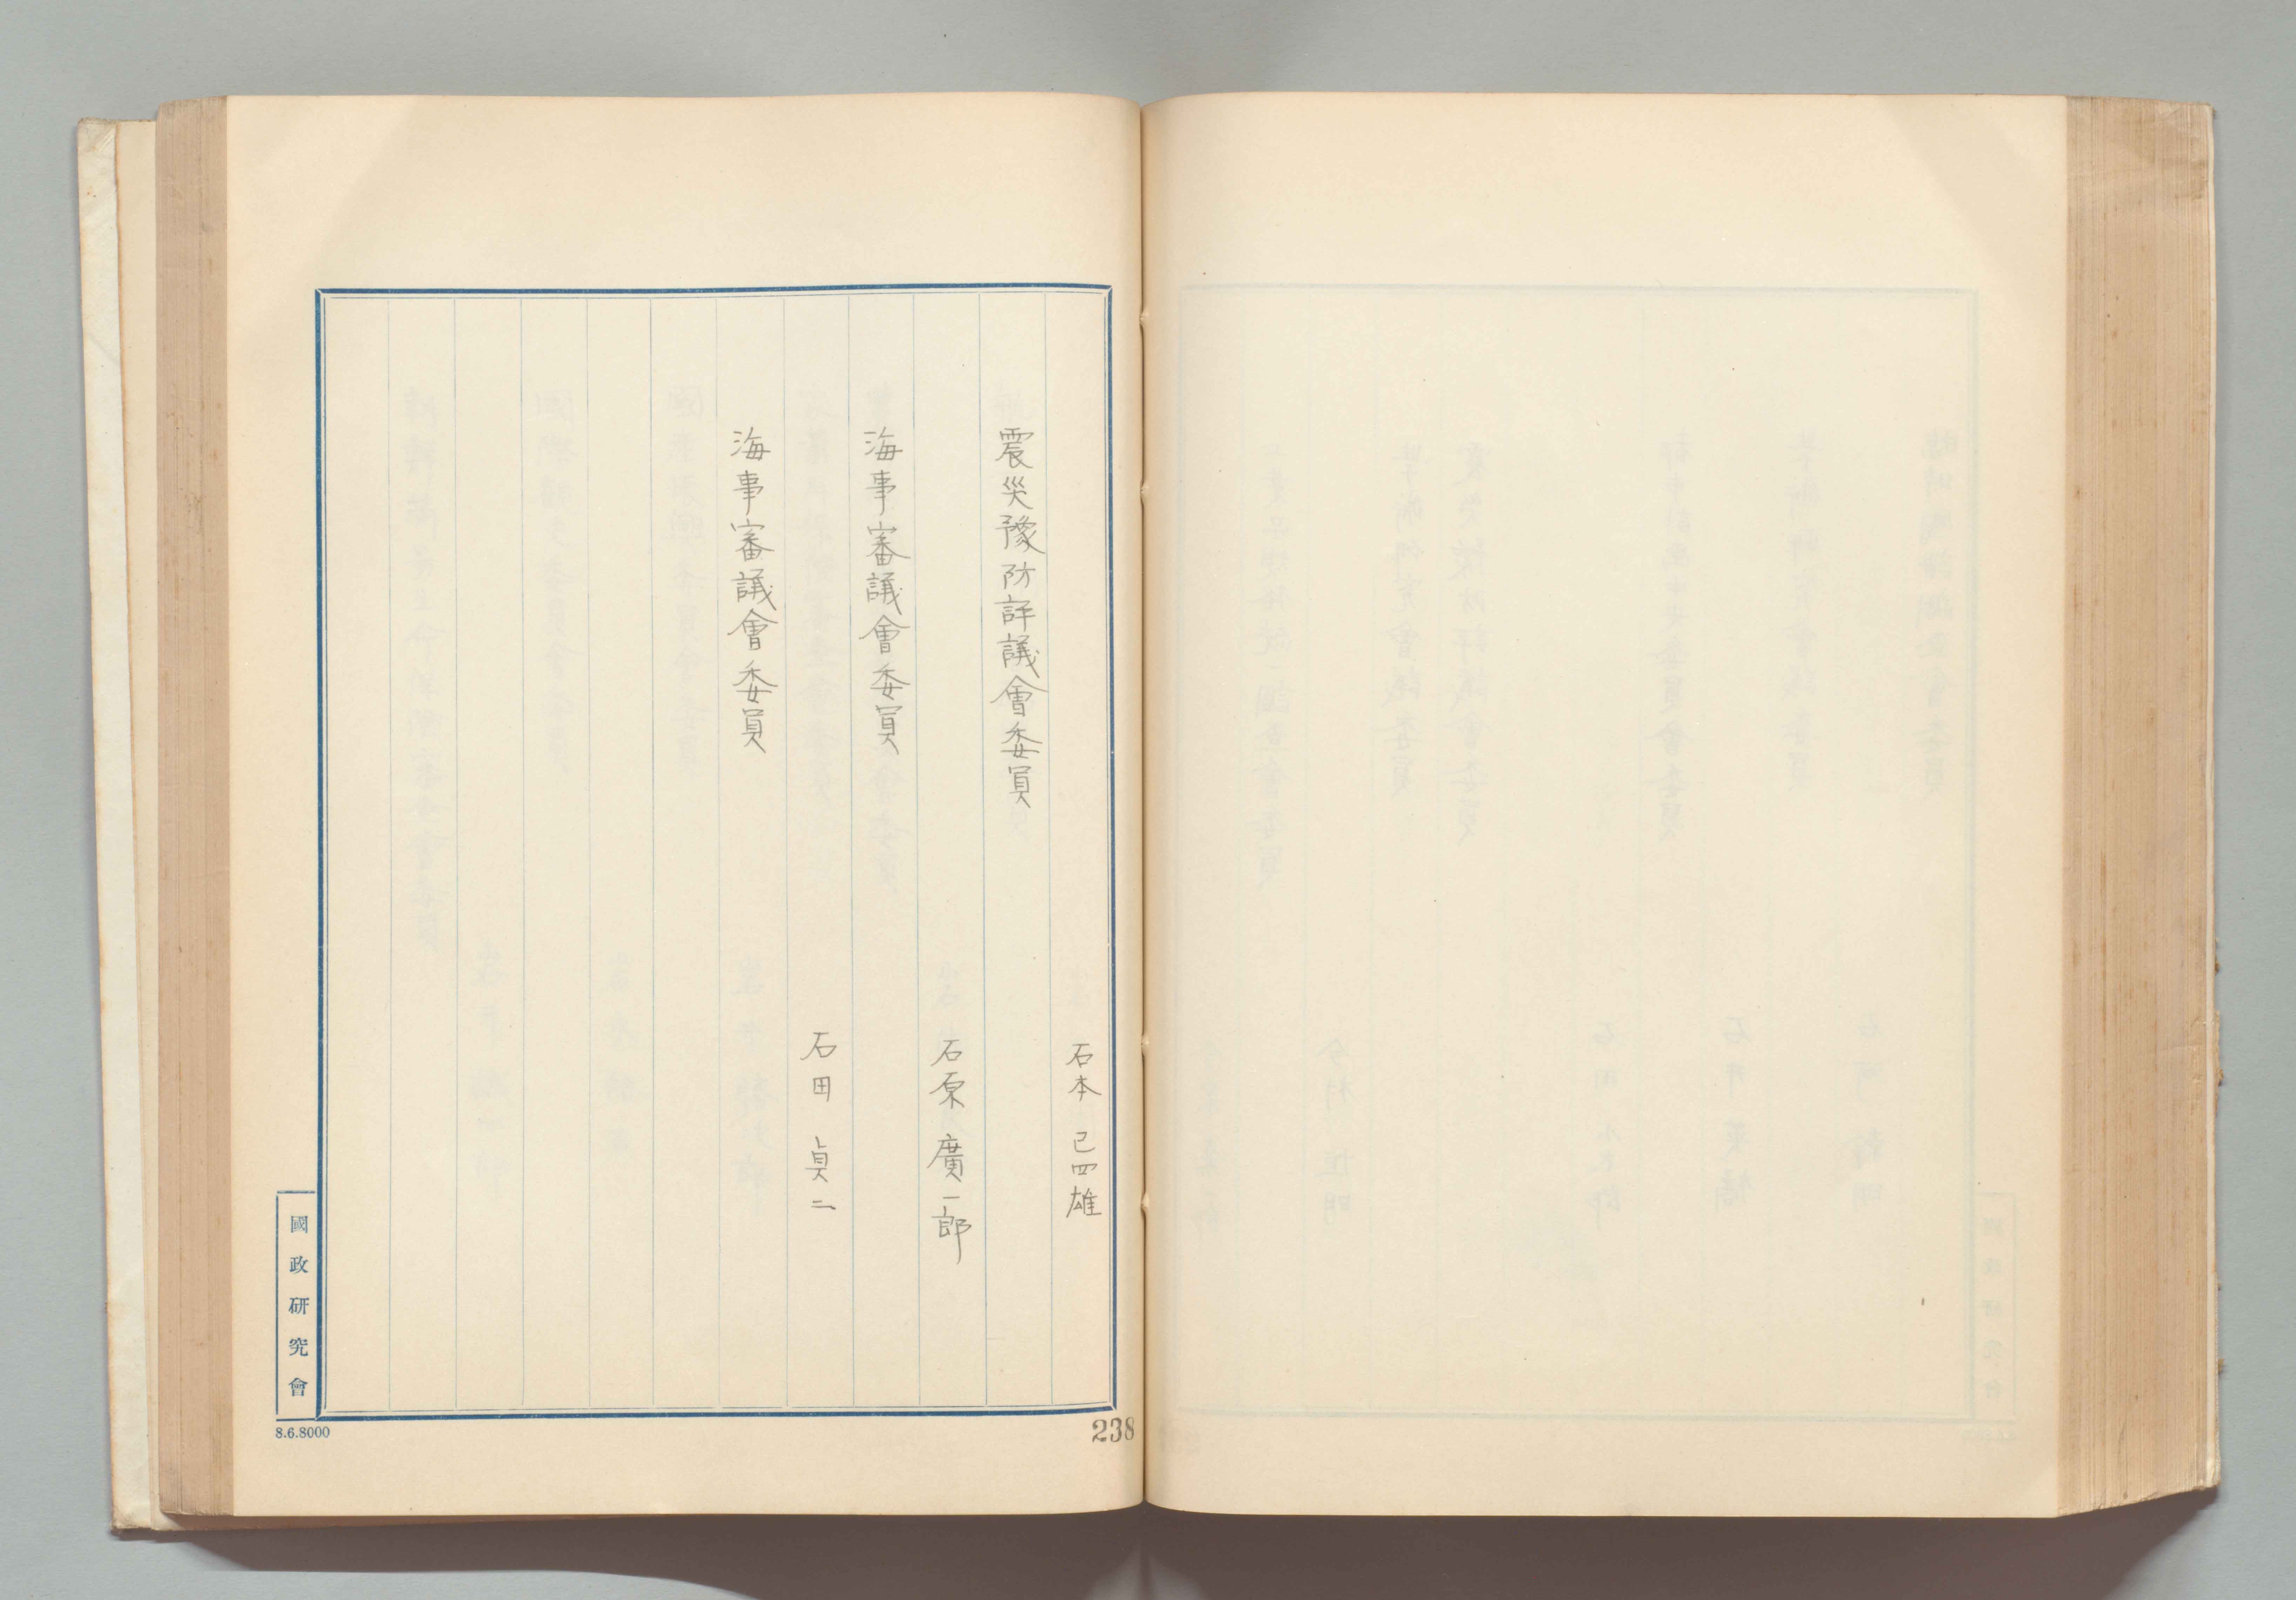 石本巳四雄
震災豫防評議會委員
石原廣一郎
海事審議會委員
石田貞二
海事審議會委員
國政研究會
8.6.8000
238